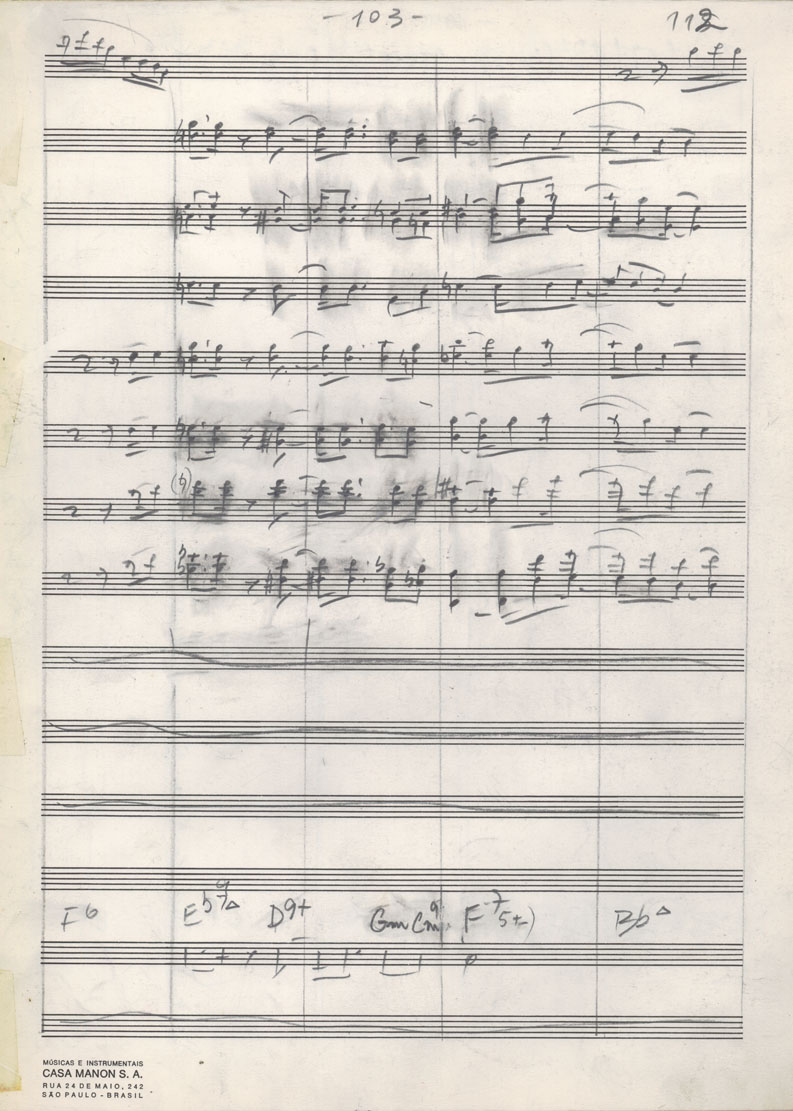 - 103 -
112
F6 Eb7 9 Δ D9+ Gm Cm9 F-7 5+) Bb Δ
MÚSICAS E INSTRUMENTAIS
CASA MANON S. A.
RUA 24 DE MAIO, 242
SÃO PAULO - BRASIL